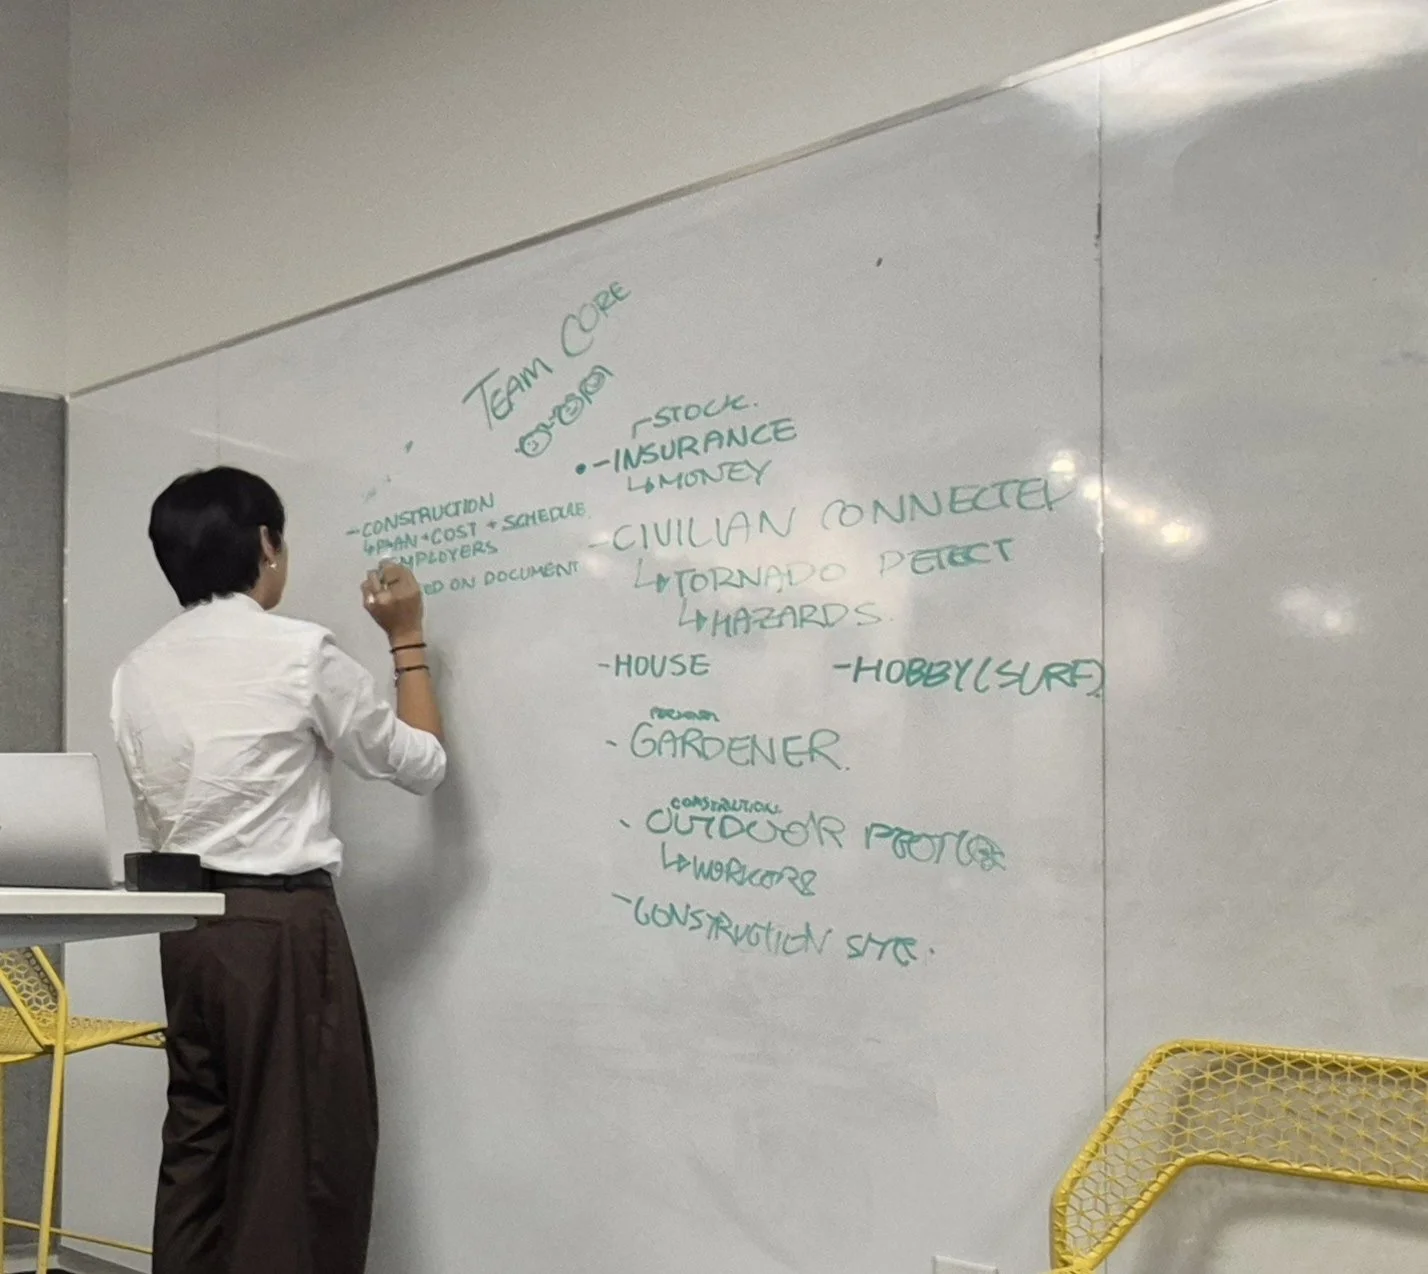 TEAM CORE
- CONSTRUCTION
↳ PLAN + COST + SCHEDULE
EMPLOYERS
ED ON DOCUMENT
STOCK.
• - INSURANCE
↳ MONEY
- CIVILIAN CONNECTED
↳ TORNADO DETECT
↳ HAZARDS.
- HOUSE
- HOBBY (SURF)
- GARDENER.
CONSTRUCTION
- OUTDOOR
↳ WORKERS
- CONSTRUCTION SITE.